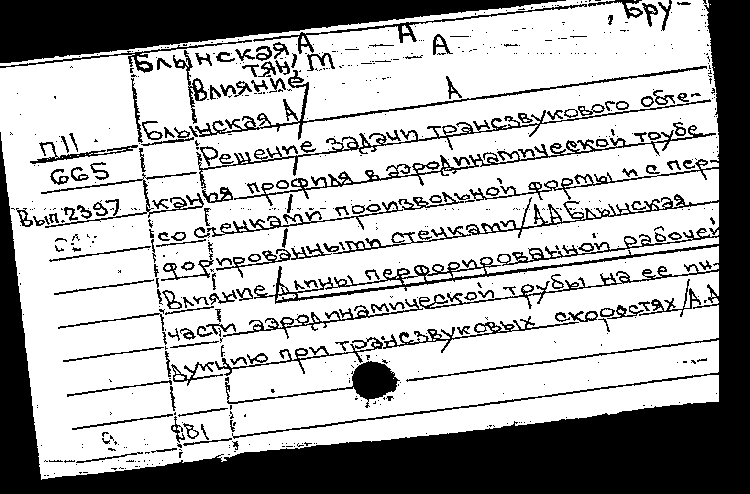 Блынская, А А А , Бру-
тян, М
Влияние
Блынская, А А
П11
665
Вып.2397
Решение задачи трансзвукового обте-
кания профиля в аэродинамической трубе
со стенками произвольной формы и с пер-
форированными стенками/А.А.Блынская.
Влияние длины перфорированной рабочей
части аэродинамической трубы на ее ин-
дукцию при трансзвуковых скоростях/А.А
981